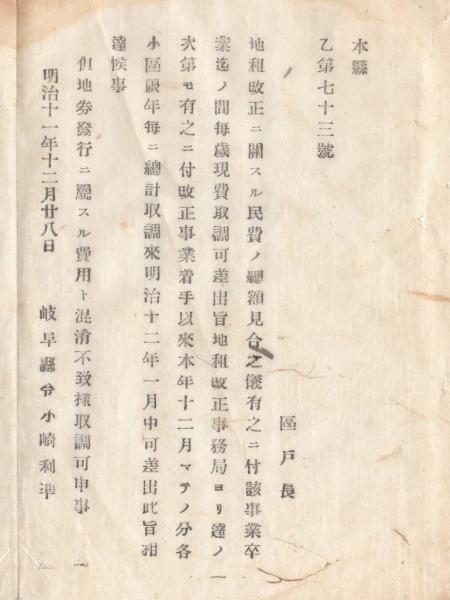 本縣
乙第七十三號
區戶長
地租改正ニ關スル民費ノ總額見合之儀有之ニ付該事業卒
業迄ノ間每歲現費取調可差出旨地租改正事務局ヨリ達ノ
次第モ有之ニ付改正事業着手以來本年十二月マテノ分各
小區限年每ニ總計取調來明治十二年一月中可差出此旨相
達候事
但地券發行ニ屬スル費用ト混淆不致樣取調可申事
明治十一年十二月廿八日 岐阜縣令小崎利準